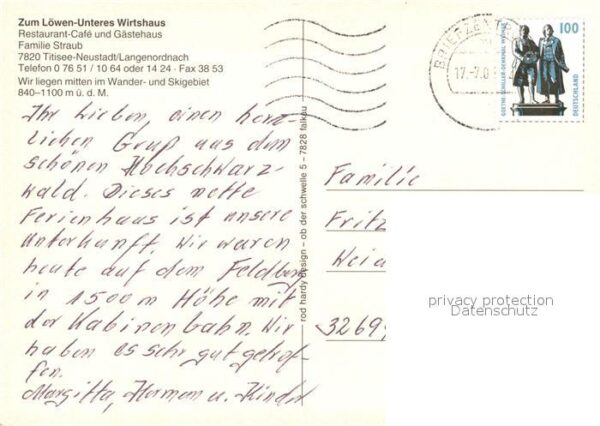 Zum Löwen-Unteres Wirtshaus
Restaurant-Café und Gästehaus
Familie Straub
7820 Titisee-Neustadt/Langenordnach
Telefon 0 76 51 / 10 64 oder 14 24 · Fax 38 53
Wir liegen mitten im Wander- und Skigebiet
840–1100 m ü. d. M.
Ihr Lieben, einen herz-
lichen Gruß aus dem
schönen Hochschwarz-
wald. Dieses nette
Ferienhaus ist unsere
Unterkunft. Wir waren
heute auf dem Feldberg
in 1500 m Höhe mit
der Kabinenbahn. Wir
haben es sehr gut getrof-
fen.
Margitta, Herman u. Kinder
rod hardy design – ob der schwelle 5 – 7828 falkau
BRIEFZENT
17.-7.0
100
DEUTSCHLAND
GOETHE-SCHILLER-DENKMAL WEIMAR
Familie
Fritz
Weid
3269
privacy protection
Datenschutz